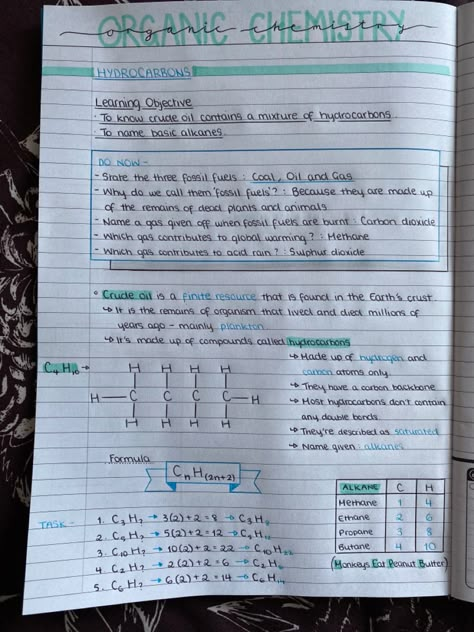 ORGANIC CHEMISTRY
organic chemistry
HYDROCARBONS
Learning Objective
· To know crude oil contains a mixture of hydrocarbons.
· To name basic alkanes.
DO NOW -
- State the three fossil fuels : Coal, Oil and Gas
- Why do we call them 'fossil fuels'? : Because they are made up
of the remains of dead plants and animals
- Name a gas given off when fossil fuels are burnt : Carbon dioxide
- Which gas contributes to global warming? : Methane
- Which gas contributes to acid rain? : Sulphur dioxide
° Crude oil is a finite resource that is found in the Earth's crust.
↳ It is the remains of organism that lived and died millions of
years ago - mainly plankton.
↳ It's made up of compounds called hydrocarbons
C₄H₁₀ →
H H H H
H — C C C C — H
H H H H
↳ Made up of hydrogen and
carbon atoms only.
↳ They have a carbon backbone
↳ Most hydrocarbons don't contain
any double bonds.
↳ They're described as saturated
↳ Name given : alkanes
Formula
CₙH(2n+2)
TASK -
1. C₃H? → 3(2)+2 = 8 → C₃H₈
2. C₅H? → 5(2)+2 = 12 → C₅H₁₂
3. C₁₀H? → 10(2)+2 = 22 → C₁₀H₂₂
4. C₂H? → 2(2)+2 = 6 → C₂H₆
5. C₆H? → 6(2)+2 = 14 → C₆H₁₄
ALKANE C H
Methane 1 4
Ethane 2 6
Propane 3 8
Butane 4 10
(Monkeys Eat Peanut Butter)